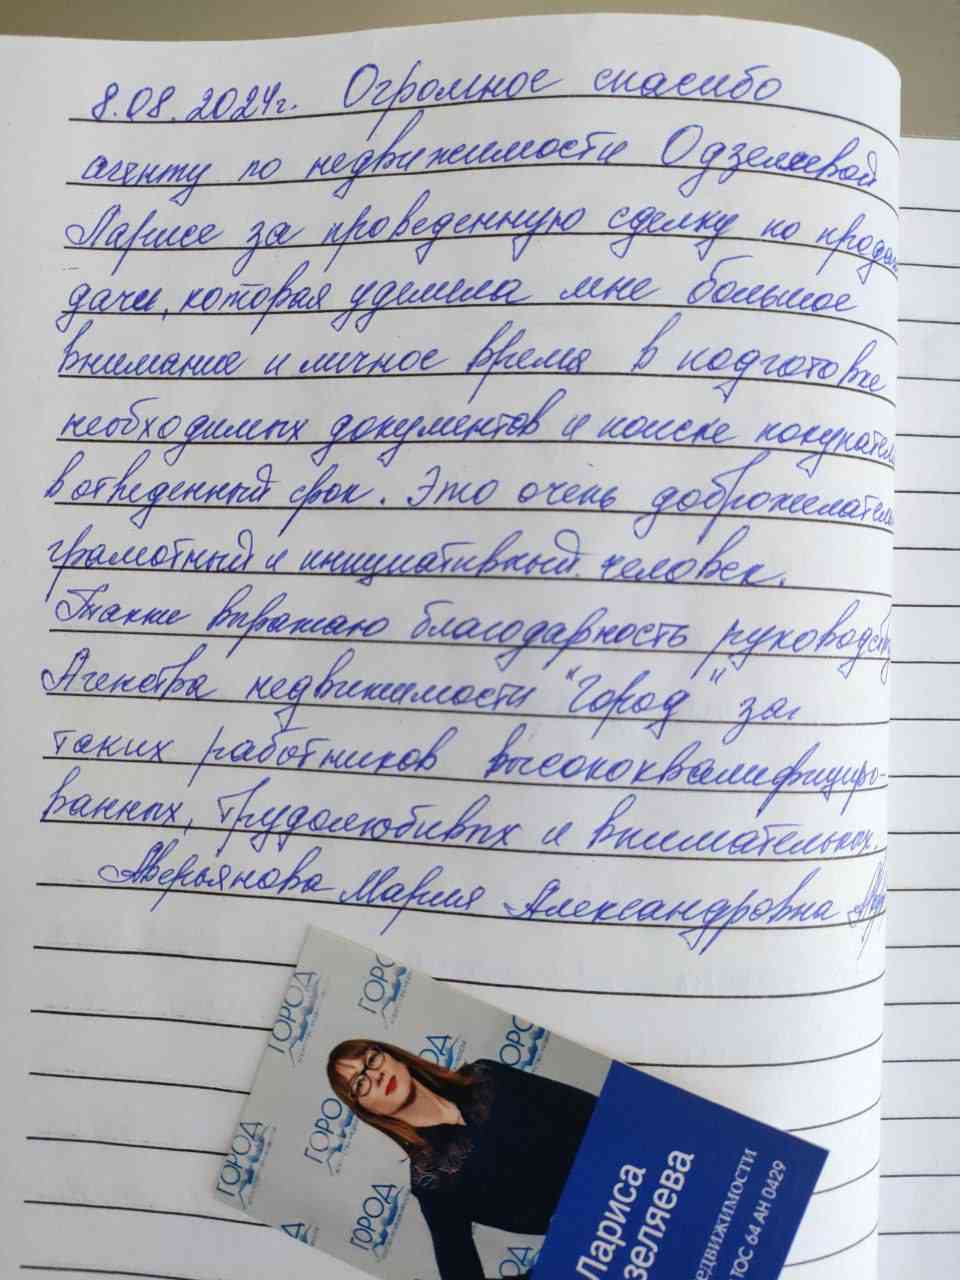 8.08.2024г. Огромное спасибо
агенту по недвижимости Одзеляевой
Ларисе за проведенную сделку по продаж
дачи, которая уделила мне большое
внимание и личное время в подготовке
необходимых документов и поиске покупател
в отведенный срок. Это очень доброжелатель
грамотный и инициативный человек.
Также выражаю благодарность руководству
Агенства недвижимости "Город" за
таких работников высококвалифициро-
ванных, трудолюбивых и внимательных.
Аверьянова Мария Александровна
ГОРОД
ГОРО
ГОРОД
ГОРО
ГОРОД
ГОРОД
Лариса
зеляева
едвижимости
ТОС 64 АН 0429